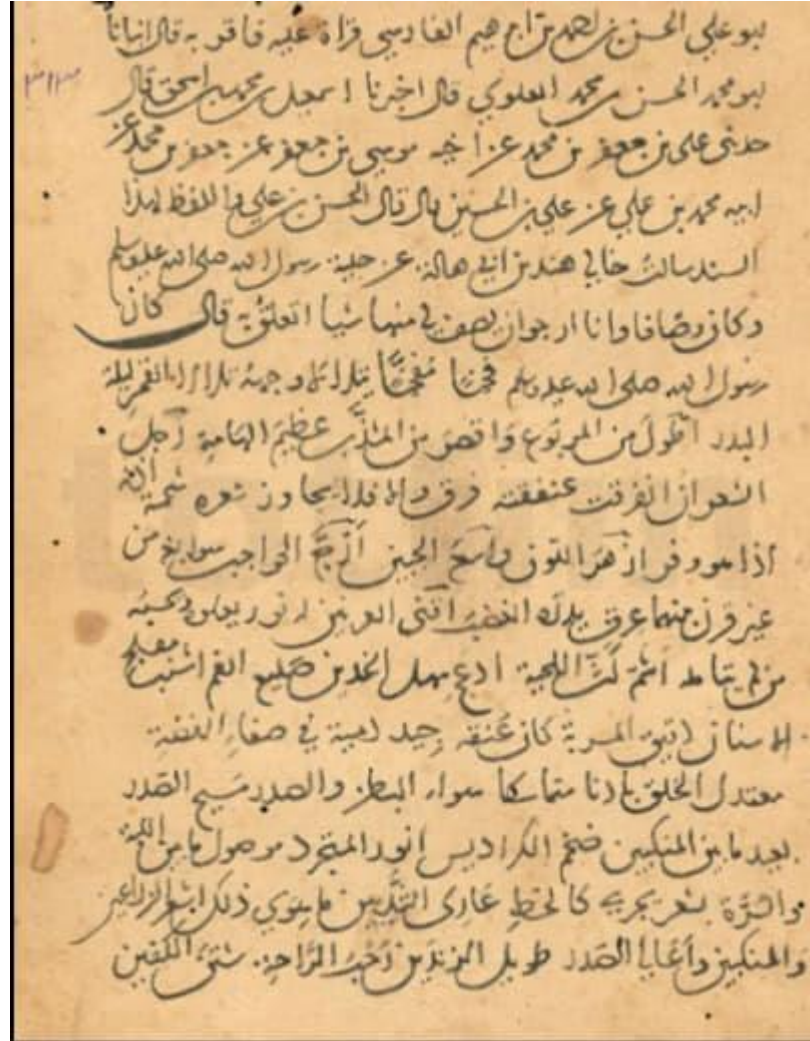 ابو علي الحسن بن احمد بن ابراهيم الفارسي قراة عليه فاقر به قال انبانا
٣١٣
ابو محمد الحسن بن محمد العلوي قال اخبرنا اسمعيل بن محمد بن اسحق قال
حدثني علي بن جعفر بن محمد عن اخيه موسى بن جعفر عن جعفر بن محمد عن
ابيه محمد بن علي عن علي بن الحسين قال قال الحسن بن علي واللفظ لهذا
السند سالت خالي هند بن ابي هالة عن حلية رسول الله صلى الله عليه وسلم
وكان وصافا وانا ارجوا ان يصف لي منها شيا اتعلق به قال كان
رسول الله صلى الله عليه وسلم فخمًا مُفخمًا يتلالا وجهه تلالا القمر ليلة
البدر اطول من المربوع واقصر من المشذَّب عظيم الهامة رجل
الشعر ان انفرقت عقيقته فرق والا فلا يجاوز شعره شحمة اذنه
اذا هو وفر ازهر اللون واسع الجبين أزج الحواجب سوابغ من
غير قرن بينهما عرق يدره الغضب اقنى العرنين له نور يعلوه ويحسبه
من لم يتامله اشم كث اللحية ادعج سهل الخدين ضليع الفم اشنب مفلج
الاسنان دقيق المسربة كان عُنقه جيد دمية في صفاء الفضة
معتدل الخلق بادنا متماسكا سواء البطن والصدر مسيح الصدر
بعيد ما بين المنكبين ضخم الكراديس انور المتجرد موصول ما بين اللبة
والسُّرَّة بشعر يجري كالخط عاري الثديين ما سوى ذلك اشعر الذراعين
والمنكبين وأعالي الصدر طويل الزندين رحب الراحة شثن الكفين